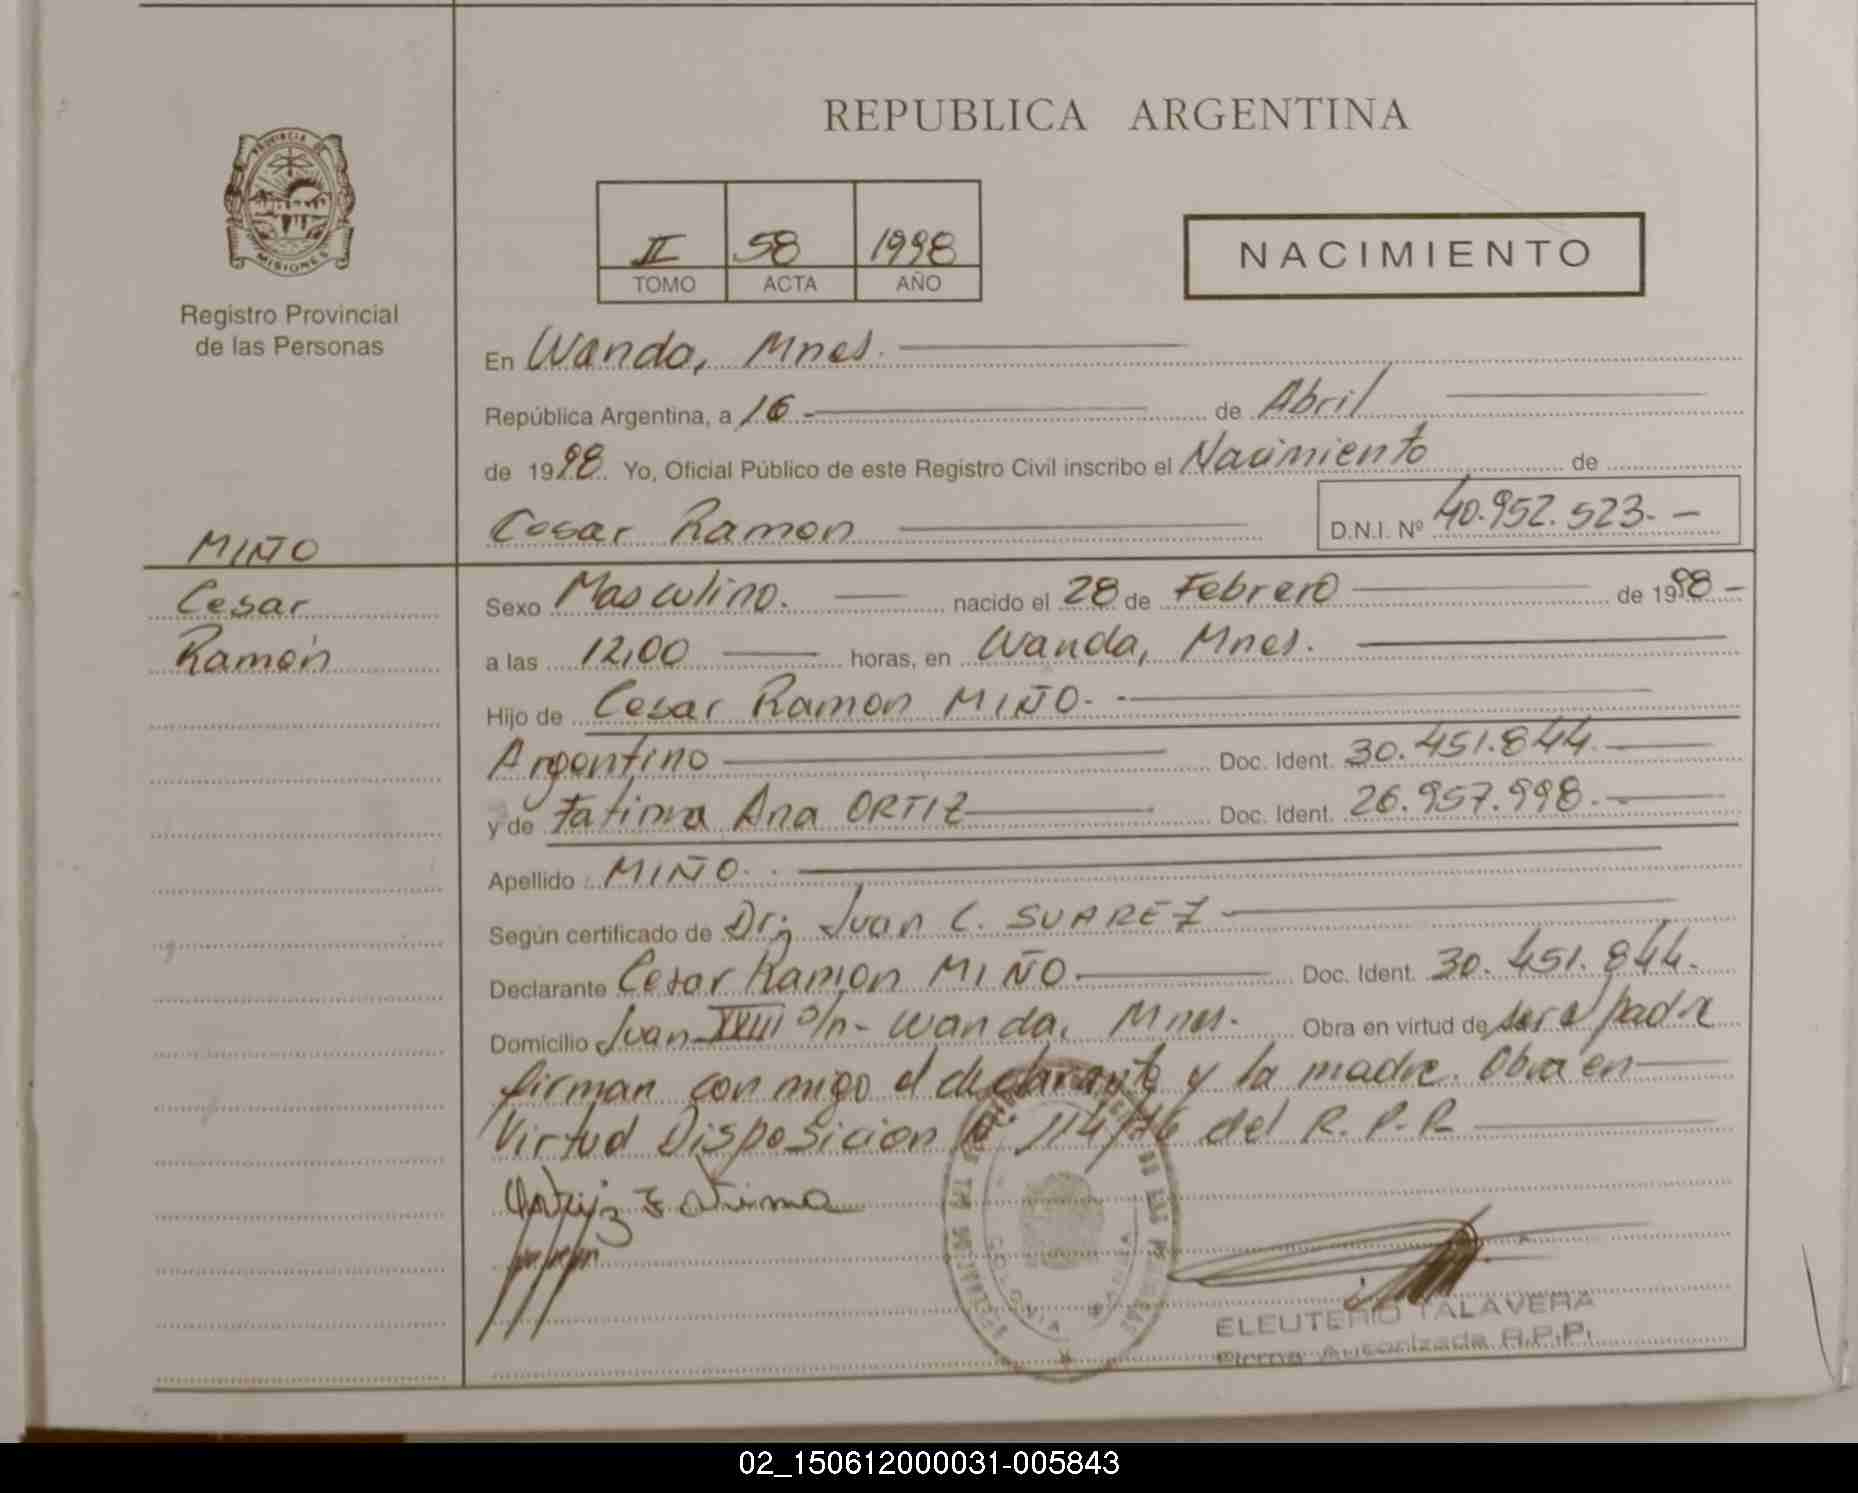 REPUBLICA ARGENTINA
PROVINCIA DE
MISIONES
Registro Provincial
de las Personas
II 58 1998
TOMO ACTA AÑO
NACIMIENTO
En Wanda, Mnes.
República Argentina, a 16 de Abril
de 1998. Yo, Oficial Público de este Registro Civil inscribo el Nacimiento de
Cesar Ramon D.N.I. Nº 40.952.523.-
MIÑO
Cesar
Ramón
Sexo Masculino. nacido el 28 de Febrero de 1998-
a las 12,00 horas, en Wanda, Mnes.
Hijo de Cesar Ramon MIÑO.-
Argentino Doc. Ident. 30.451.844.
y de Fatima Ana ORTIZ Doc. Ident. 26.957.998.
Apellido MIÑO.
Según certificado de Dr; Juan C. SUAREZ
Declarante Cesar Ramon MIÑO Doc. Ident. 30.451.844.
Domicilio Juan XXIII s/n- Wanda, Mnes. Obra en virtud de ser el padre
firman conmigo el declarante y la madre. Obra en
Virtud Disposicion Nº 114/76 del R.P.P.
Ortiz Fatima
COLONIA WANDA
ELEUTERIO TALAVERA
Firma Autorizada R.P.P.
02_150612000031-005843